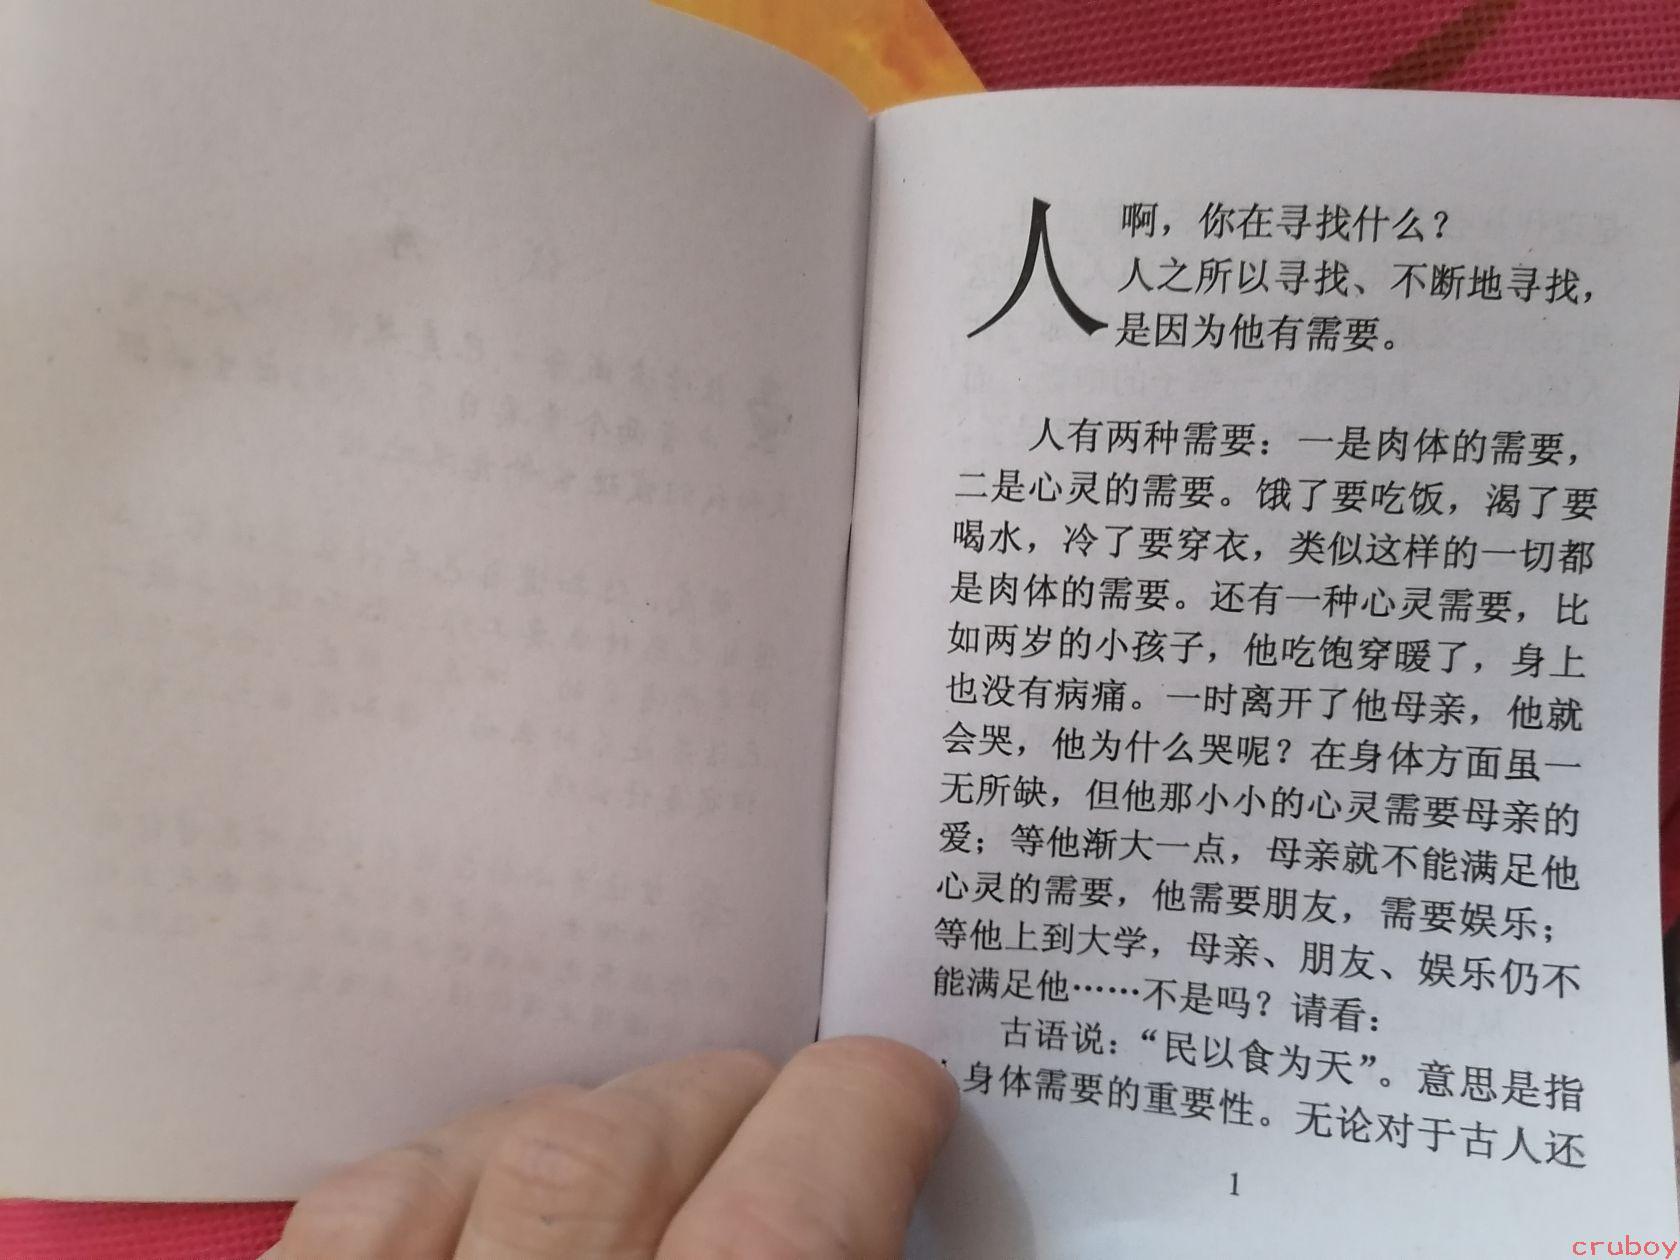 人啊，你在寻找什么？
人之所以寻找、不断地寻找，
是因为他有需要。
人有两种需要：一是肉体的需要，
二是心灵的需要。饿了要吃饭，渴了要
喝水，冷了要穿衣，类似这样的一切都
是肉体的需要。还有一种心灵需要，比
如两岁的小孩子，他吃饱穿暖了，身上
也没有病痛。一时离开了他母亲，他就
会哭，他为什么哭呢？在身体方面虽一
无所缺，但他那小小的心灵需要母亲的
爱；等他渐大一点，母亲就不能满足他
心灵的需要，他需要朋友，需要娱乐；
等他上到大学，母亲、朋友、娱乐仍不
能满足他……不是吗？请看：
古语说：“民以食为天”。意思是指
身体需要的重要性。无论对于古人还
1
cruboy